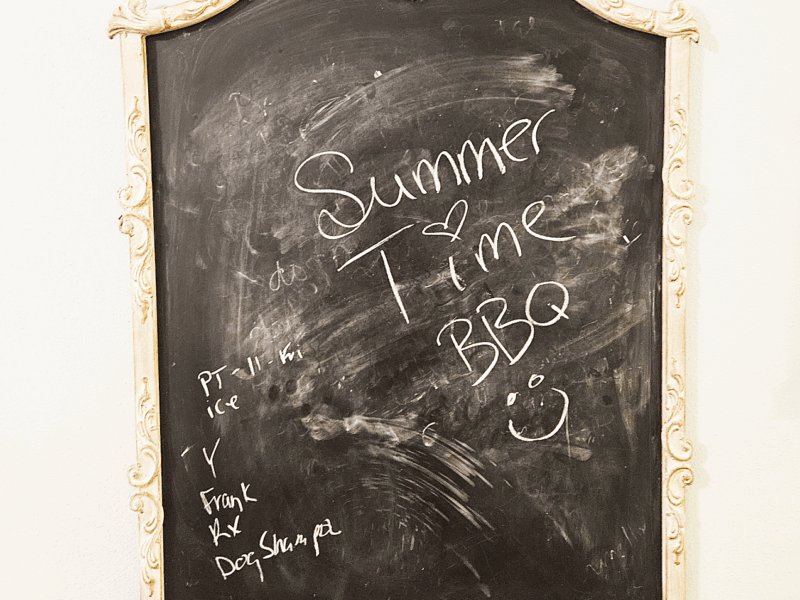 Summer
Time
BBQ
PT-11-Fri
ice
Y
Frank
Rx
Dog